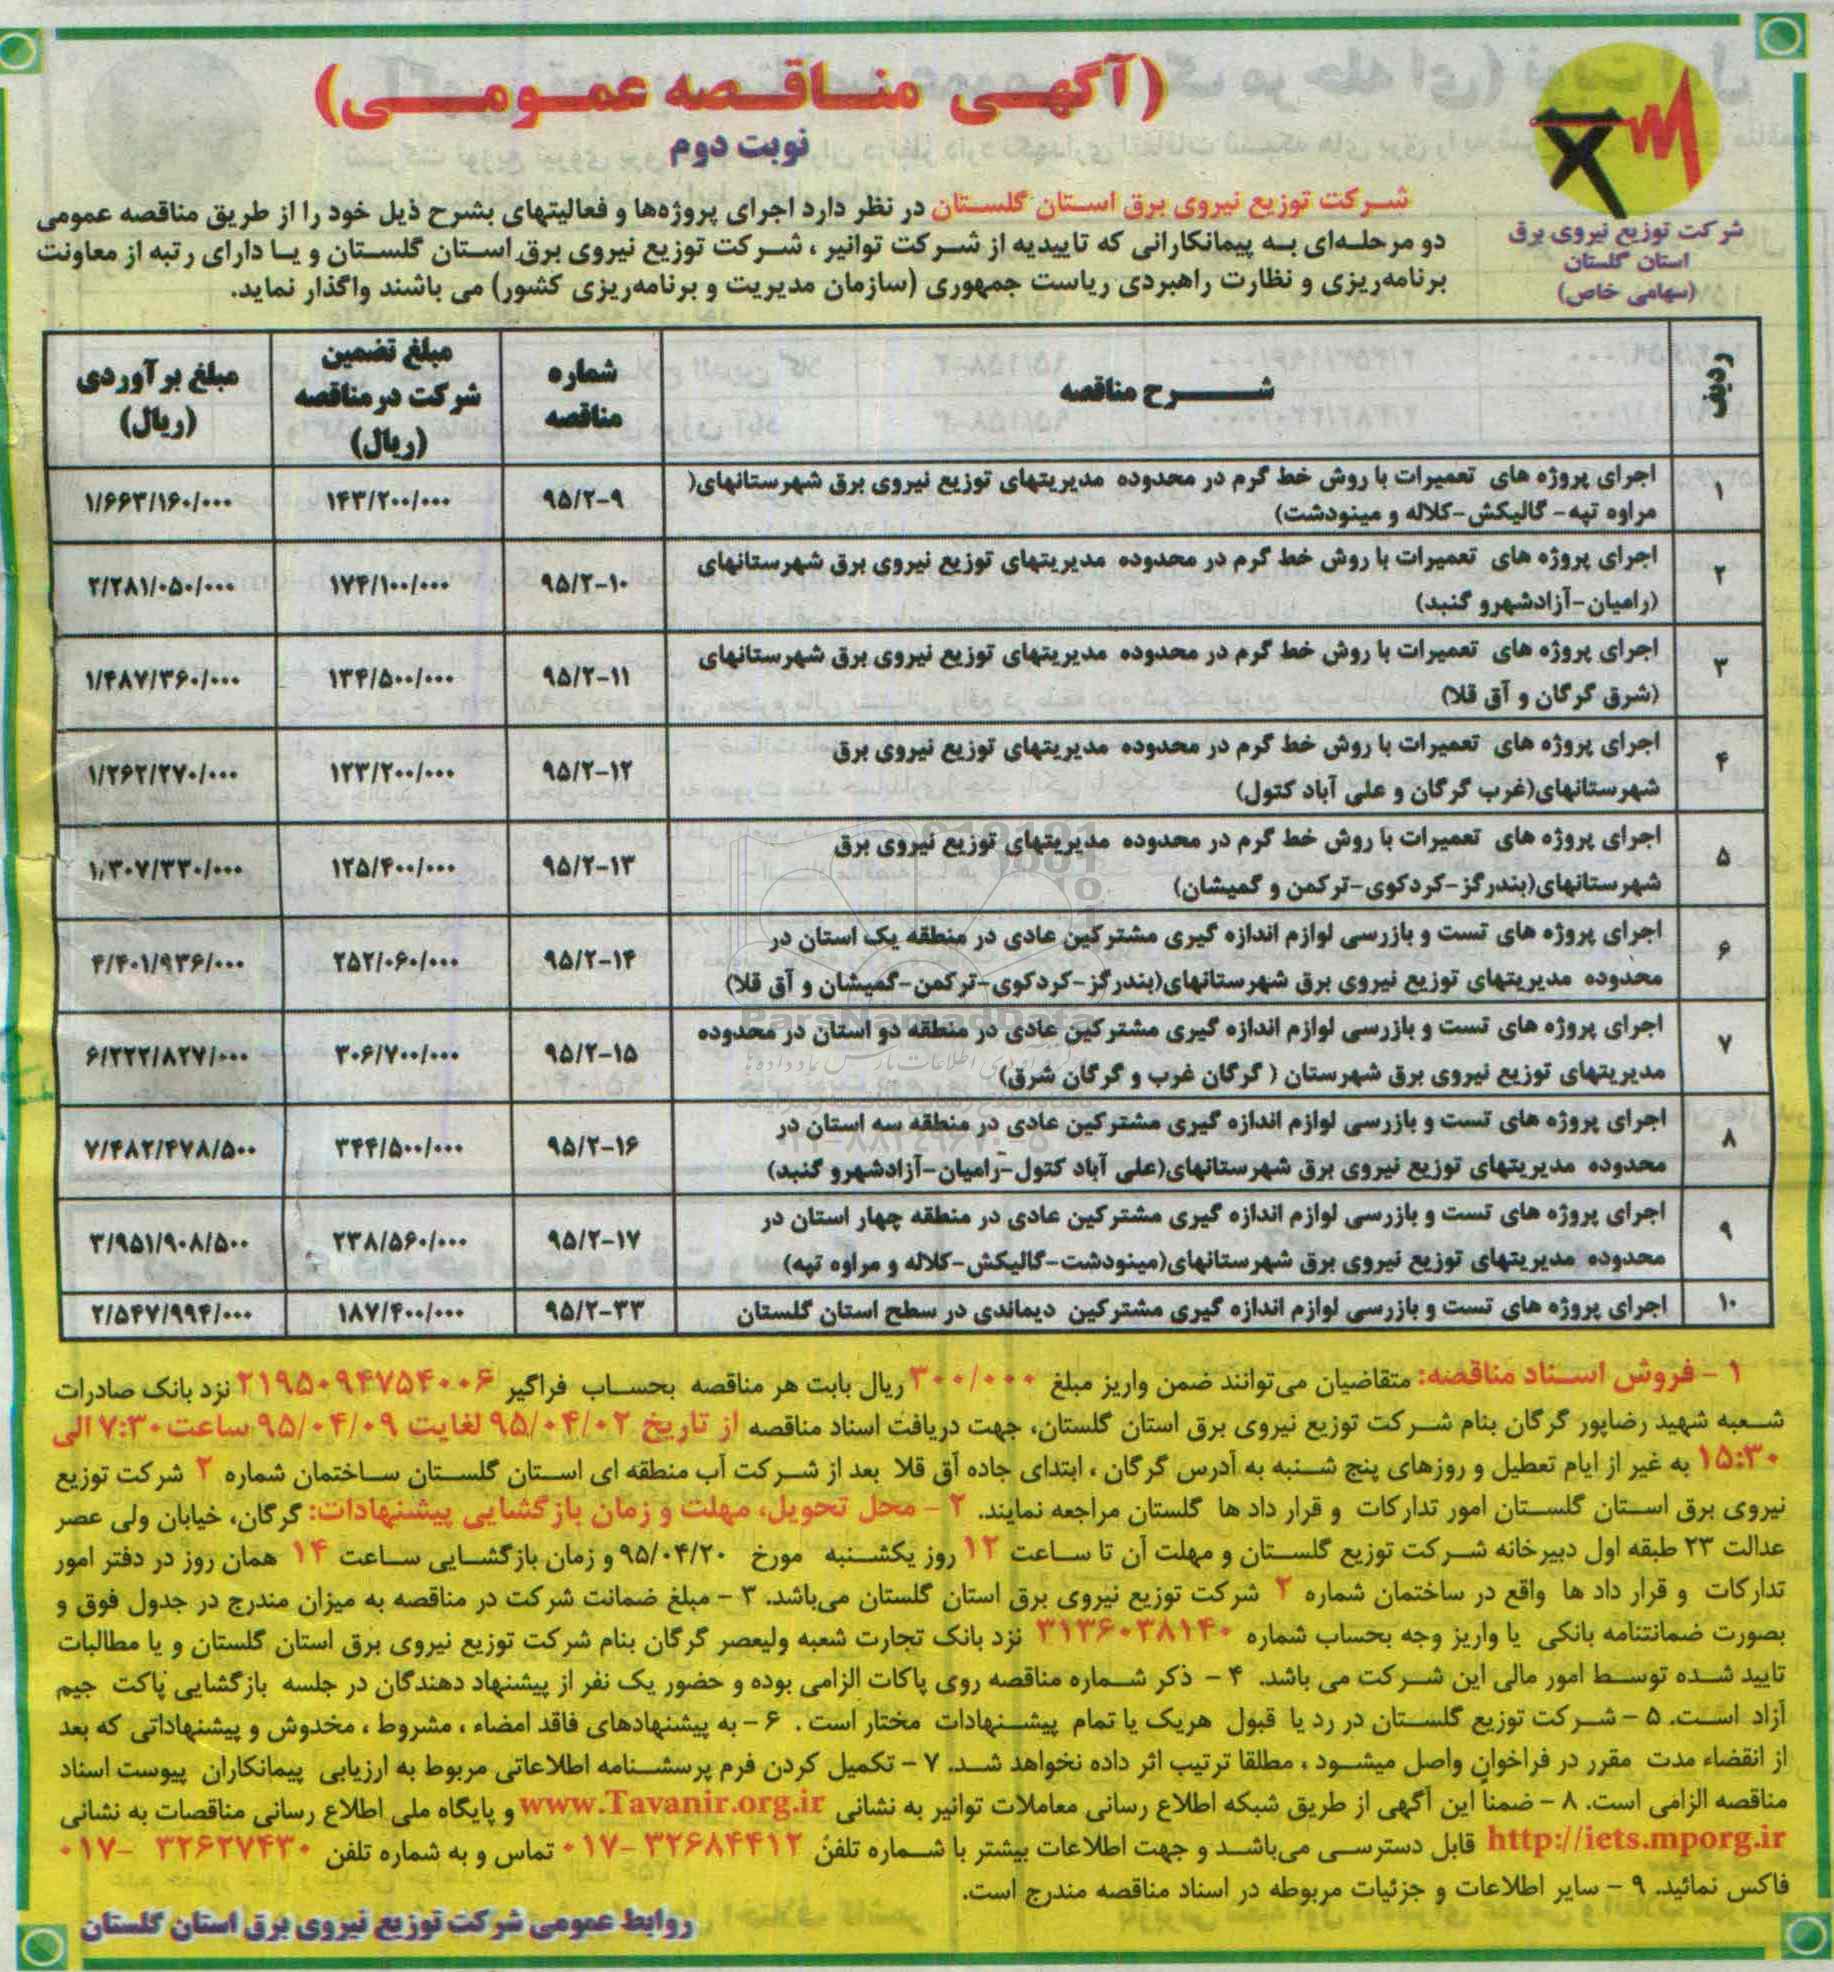 (آگهی مناقصه عمومی)
نوبت دوم
شرکت توزیع نیروی برق
استان گلستان
(سهامی خاص)
شرکت توزیع نیروی برق استان گلستان در نظر دارد اجرای پروژه‌ها و فعالیتهای بشرح ذیل خود را از طریق مناقصه عمومی
دو مرحله‌ای به پیمانکارانی که تاییدیه از شرکت توانیر ، شرکت توزیع نیروی برق استان گلستان و یا دارای رتبه از معاونت
برنامه‌ریزی و نظارت راهبردی ریاست جمهوری (سازمان مدیریت و برنامه‌ریزی کشور) می باشند واگذار نماید.
ردیف | شرح مناقصه | شماره مناقصه | مبلغ تضمین شرکت در مناقصه (ریال) | مبلغ برآوردی (ریال)
۱ | اجرای پروژه های تعمیرات با روش خط گرم در محدوده مدیریتهای توزیع نیروی برق شهرستانهای(
مراوه تپه- گالیکش-کلاله و مینودشت) | ۹۵/۲-۹ | ۱۴۳/۲۰۰/۰۰۰ | ۱/۶۶۳/۱۶۰/۰۰۰
۲ | اجرای پروژه های تعمیرات با روش خط گرم در محدوده مدیریتهای توزیع نیروی برق شهرستانهای
(رامیان-آزادشهرو گنبد) | ۹۵/۲-۱۰ | ۱۷۴/۱۰۰/۰۰۰ | ۲/۲۸۱/۰۵۰/۰۰۰
۳ | اجرای پروژه های تعمیرات با روش خط گرم در محدوده مدیریتهای توزیع نیروی برق شهرستانهای
(شرق گرگان و آق قلا) | ۹۵/۲-۱۱ | ۱۳۴/۵۰۰/۰۰۰ | ۱/۴۸۷/۳۶۰/۰۰۰
۴ | اجرای پروژه های تعمیرات با روش خط گرم در محدوده مدیریتهای توزیع نیروی برق
شهرستانهای(غرب گرگان و علی آباد کتول) | ۹۵/۲-۱۲ | ۱۲۳/۲۰۰/۰۰۰ | ۱/۲۶۲/۲۷۰/۰۰۰
۵ | اجرای پروژه های تعمیرات با روش خط گرم در محدوده مدیریتهای توزیع نیروی برق
شهرستانهای(بندرگز-کردکوی-ترکمن و گمیشان) | ۹۵/۲-۱۳ | ۱۲۵/۴۰۰/۰۰۰ | ۱/۳۰۷/۳۳۰/۰۰۰
۶ | اجرای پروژه های تست و بازرسی لوازم اندازه گیری مشترکین عادی در منطقه یک استان در
محدوده مدیریتهای توزیع نیروی برق شهرستانهای(بندرگز-کردکوی-ترکمن-گمیشان و آق قلا) | ۹۵/۲-۱۴ | ۲۵۲/۰۶۰/۰۰۰ | ۴/۴۰۱/۹۳۶/۰۰۰
۷ | اجرای پروژه های تست و بازرسی لوازم اندازه گیری مشترکین عادی در منطقه دو استان در محدوده
مدیریتهای توزیع نیروی برق شهرستان ( گرگان غرب و گرگان شرق) | ۹۵/۲-۱۵ | ۳۰۶/۷۰۰/۰۰۰ | ۶/۲۲۲/۸۲۷/۰۰۰
۸ | اجرای پروژه های تست و بازرسی لوازم اندازه گیری مشترکین عادی در منطقه سه استان در
محدوده مدیریتهای توزیع نیروی برق شهرستانهای(علی آباد کتول-رامیان-آزادشهرو گنبد) | ۹۵/۲-۱۶ | ۳۴۴/۵۰۰/۰۰۰ | ۷/۴۸۲/۴۷۸/۵۰۰
۹ | اجرای پروژه های تست و بازرسی لوازم اندازه گیری مشترکین عادی در منطقه چهار استان در
محدوده مدیریتهای توزیع نیروی برق شهرستانهای(مینودشت-گالیکش-کلاله و مراوه تپه) | ۹۵/۲-۱۷ | ۲۳۸/۵۶۰/۰۰۰ | ۳/۹۵۱/۹۰۸/۵۰۰
۱۰ | اجرای پروژه های تست و بازرسی لوازم اندازه گیری مشترکین دیماندی در سطح استان گلستان | ۹۵/۲-۳۳ | ۱۸۷/۴۰۰/۰۰۰ | ۲/۵۴۷/۹۹۴/۰۰۰
ParsNamadData
۱ - فروش اسناد مناقصه: متقاضیان می‌توانند ضمن واریز مبلغ ۳۰۰/۰۰۰ ریال بابت هر مناقصه بحساب فراگیر ۲۱۹۵۰۹۴۷۵۴۰۰۶ نزد بانک صادرات
شعبه شهید رضاپور گرگان بنام شرکت توزیع نیروی برق استان گلستان، جهت دریافت اسناد مناقصه از تاریخ ۹۵/۰۴/۰۲ لغایت ۹۵/۰۴/۰۹ ساعت ۷:۳۰ الی
۱۵:۳۰ به غیر از ایام تعطیل و روزهای پنج شنبه به آدرس گرگان ، ابتدای جاده آق قلا بعد از شرکت آب منطقه ای استان گلستان ساختمان شماره ۲ شرکت توزیع
نیروی برق استان گلستان امور تدارکات و قرار داد ها گلستان مراجعه نمایند. ۲ - محل تحویل، مهلت و زمان بازگشایی پیشنهادات: گرگان، خیابان ولی عصر
عدالت ۲۳ طبقه اول دبیرخانه شرکت توزیع گلستان و مهلت آن تا ساعت ۱۲ روز یکشنبه مورخ ۹۵/۰۴/۲۰ و زمان بازگشایی ساعت ۱۴ همان روز در دفتر امور
تدارکات و قرار داد ها واقع در ساختمان شماره ۲ شرکت توزیع نیروی برق استان گلستان می‌باشد. ۳ - مبلغ ضمانت شرکت در مناقصه به میزان مندرج در جدول فوق و
بصورت ضمانتنامه بانکی یا واریز وجه بحساب شماره ۳۱۳۶۰۳۸۱۴۰ نزد بانک تجارت شعبه ولیعصر گرگان بنام شرکت توزیع نیروی برق استان گلستان و یا مطالبات
تایید شده توسط امور مالی این شرکت می باشد. ۴ - ذکر شماره مناقصه روی پاکات الزامی بوده و حضور یک نفر از پیشنهاد دهندگان در جلسه بازگشایی پاکت جیم
آزاد است. ۵ - شرکت توزیع گلستان در رد یا قبول هریک یا تمام پیشنهادات مختار است . ۶ - به پیشنهادهای فاقد امضاء ، مشروط ، مخدوش و پیشنهاداتی که بعد
از انقضاء مدت مقرر در فراخوان واصل میشود ، مطلقا ترتیب اثر داده نخواهد شد. ۷ - تکمیل کردن فرم پرسشنامه اطلاعاتی مربوط به ارزیابی پیمانکاران پیوست اسناد
مناقصه الزامی است. ۸ - ضمنا این آگهی از طریق شبکه اطلاع رسانی معاملات توانیر به نشانی www.Tavanir.org.ir و پایگاه ملی اطلاع رسانی مناقصات به نشانی
http://iets.mporg.ir قابل دسترسی می‌باشد و جهت اطلاعات بیشتر با شماره تلفن ۳۲۶۸۴۴۱۲ -۰۱۷ تماس و به شماره تلفن ۳۲۶۲۷۴۳۰ -۰۱۷
فاکس نمائید. ۹ - سایر اطلاعات و جزئیات مربوطه در اسناد مناقصه مندرج است.
روابط عمومی شرکت توزیع نیروی برق استان گلستان